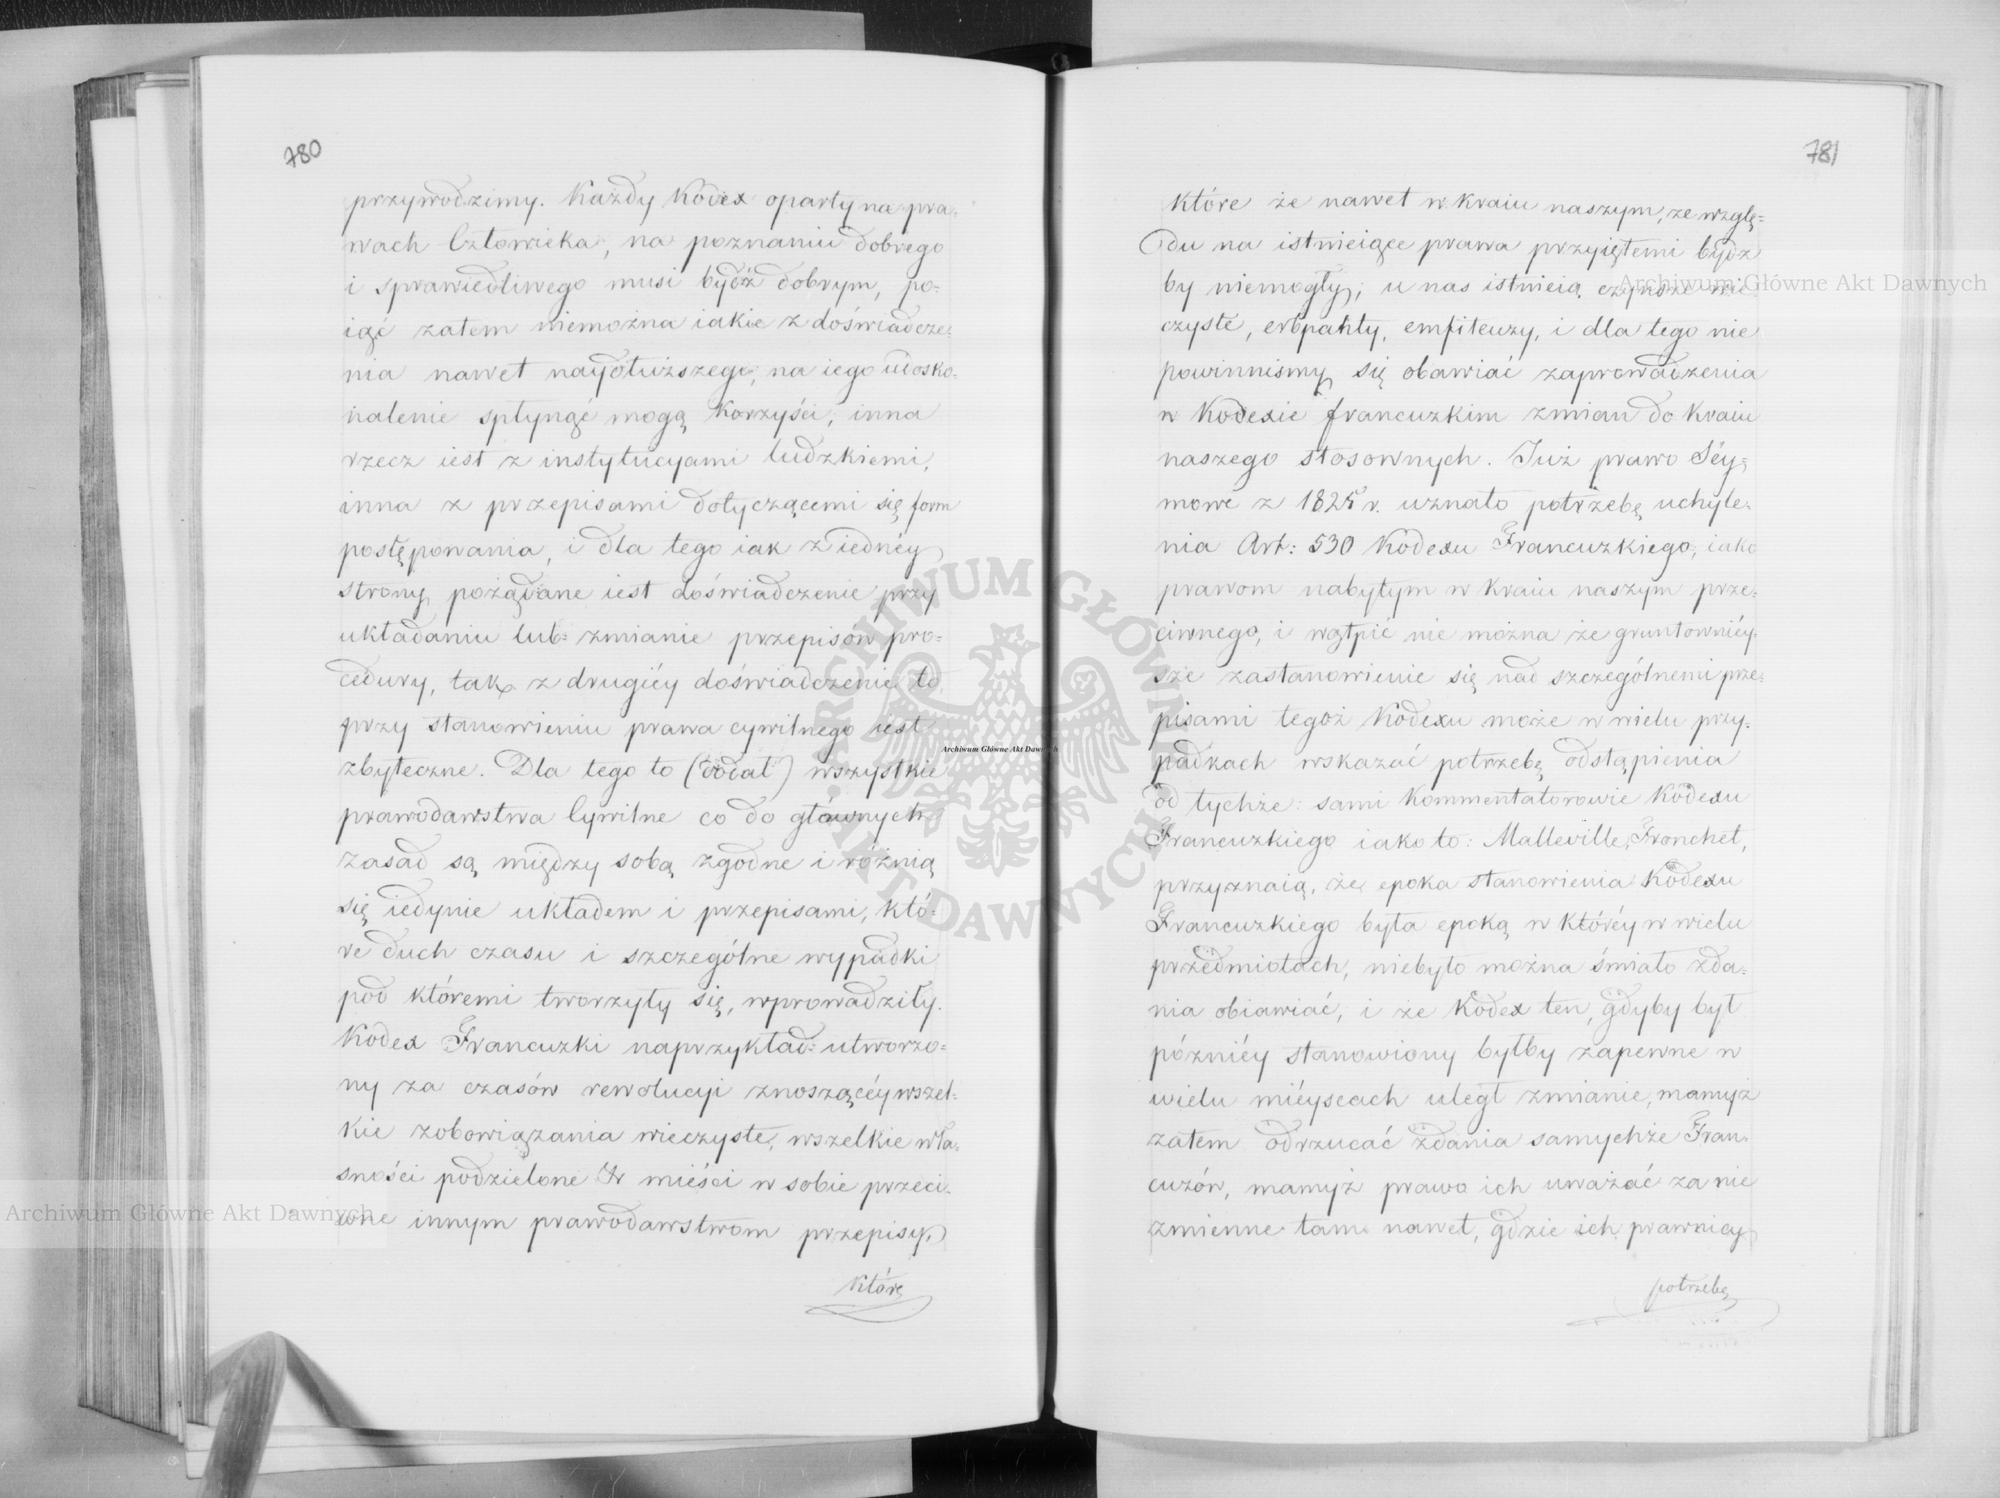 780
przywodzimy. Każdy Kodex oparty na pra-
wach Człowieka, na poznaniu dobrego
i sprawiedliwego musi bydź dobrym, po-
iąć zatem niemożna iakie z doświadcze-
nia nawet naydłuższego, na iego udosko-
nalenie spłynąć mogą korzyści; inna
rzecz iest z instytucyami ludzkiemi,
inna z przepisami dotyczącemi się form
postępowania, i dla tego iak z iednéy
strony pożądane iest doświadczenie przy
układaniu lub zmianie przepisów pro-
cedury, tak z drugiéy doświadczenie to
przy stanowieniu prawa cywilnego iest
zbyteczne. Dla tego to (dodał) wszystkie
prawodawstwa Cywilne co do głównych
zasad są między sobą zgodne i różnią
się iedynie układem i przepisami, któ-
re duch czasu i szczególne wypadki
pod któremi tworzyły się, wprowadziły.
Kodex Francuzki naprzykład: utworzo-
ny za czasów rewolucyi znoszącéy wszel-
kie zobowiązania wieczyste, wszelkie wła-
sności podzielone & mieści w sobie przeci-
wne innym prawodawstwom przepisy,
które
781
które że nawet w kraiu naszym, ze wzglę-
du na istnieiące prawa przyiętemi bydź
by niemogły; u nas istnieią czynsze wie-
czyste, erbpahty, emfiteuzy, i dla tego nie
powinniśmy się obawiać zaprowadzenia
w Kodexie francuzkim zmian do kraiu
naszego stosownych. Już prawo Séy-
mowe z 1825 r. uznało potrzebę uchyle-
nia Art: 530 Kodexu Francuzkiego, iako
prawom nabytym w kraiu naszym prze-
ciwnego, i wątpić nie można że gruntowniéy-
sze zastanowienie się nad szczególnemi prze-
pisami tegoż Kodexu może w wielu przy-
padkach wskazać potrzebę odstąpienia
od tychże: sami Kommentatorowie Kodexu
Francuzkiego iako to: Malleville, Fronchet,
przyznaią, że epoka stanowienia Kodexu
Francuzkiego była epoką w któréy w wielu
przedmiotach, niebyło można śmiało zda-
nia obiawiać, i że Kodex ten, gdyby był
późniéy stanowiony byłby zapewne w
wielu miéyscach uległ zmianie, mamyż
zatem odrzucać zdania samychże Fran-
cuzów, mamyż prawo ich uważać za nie
zmienne tam nawet, gdzie ich prawnicy
potrzebę
Archiwum Główne Akt Dawnych
Archiwum Główne Akt Dawnych
Archiwum Główne Akt Dawnych
ARCHIWUM GŁÓWNE AKT DAWNYCH